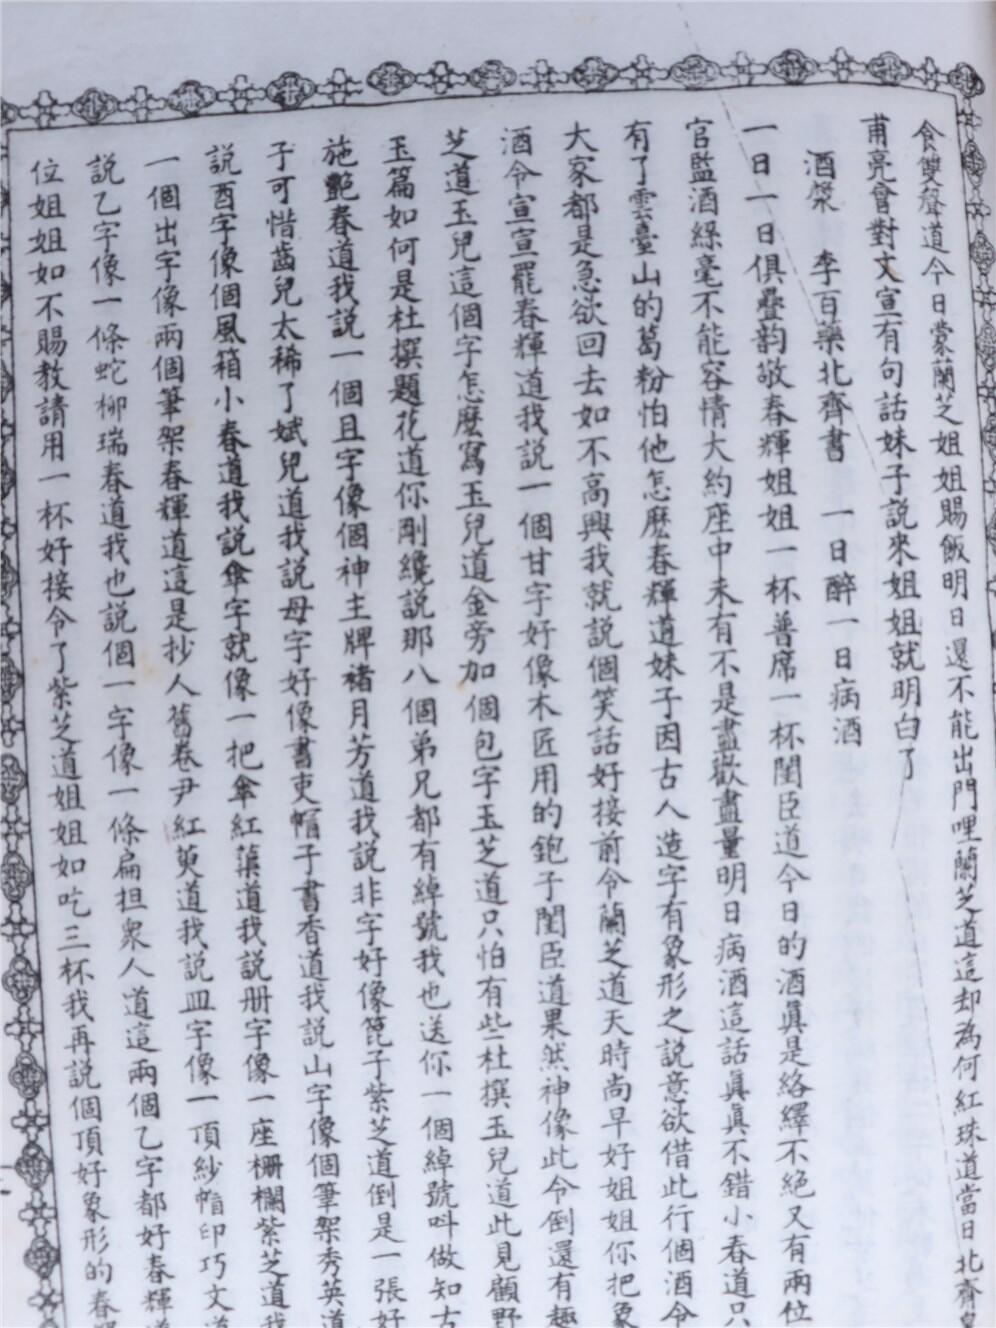 食雙聲道今日蒙蘭芝姐姐賜飯明日還不能出門哩蘭芝道這却為何紅珠道當日北齊
甫亮曾對文宣有句話妹子說來姐姐就明白了
酒漿　李百藥北齊書　一日醉一日病酒
一日一日俱疊韵敬春輝姐姐一杯普席一杯閨臣道今日的酒眞是絡繹不絕又有兩位
官監酒綠毫不能容情大約座中未有不是盡歡盡量明日病酒這話眞眞不錯小春道只
有了雲臺山的葛粉怕他怎麽春輝道妹子因古人造字有象形之說意欲借此行個酒令
大家都是急欲回去如不高興我就說個笑話好接前令蘭芝道天時尚早好姐姐你把象
酒令宣宣罷春輝道我說一個甘字好像木匠用的鉋子閨臣道果然神像此令倒還有趣
芝道玉兒這個字怎麽寫玉兒道金旁加個包字玉芝道只怕有些杜撰玉兒道此見顧野
玉篇如何是杜撰題花道你剛纔說那八個弟兄都有綽號我也送你一個綽號叫做知古
施艷春道我說一個且字像個神主牌褚月芳道我說非字好像篦子紫芝道倒是一張好
子可惜齒兒太稀了斌兒道我說母字好像書吏帽子書香道我說山字像個筆架秀英道
說酉字像個風箱小春道我說傘字就像一把傘紅蕖道我說册字像一座柵欄紫芝道我
一個出字像兩個筆架春輝道這是抄人舊卷尹紅萸道我說皿字像一頂紗帽印巧文道
說乙字像一條蛇柳瑞春道我也說個一字像一條扁担衆人道這兩個乙字都好春輝道
位姐姐如不賜教請用一杯好接令了紫芝道姐姐如吃三杯我再說個頂好象形的春